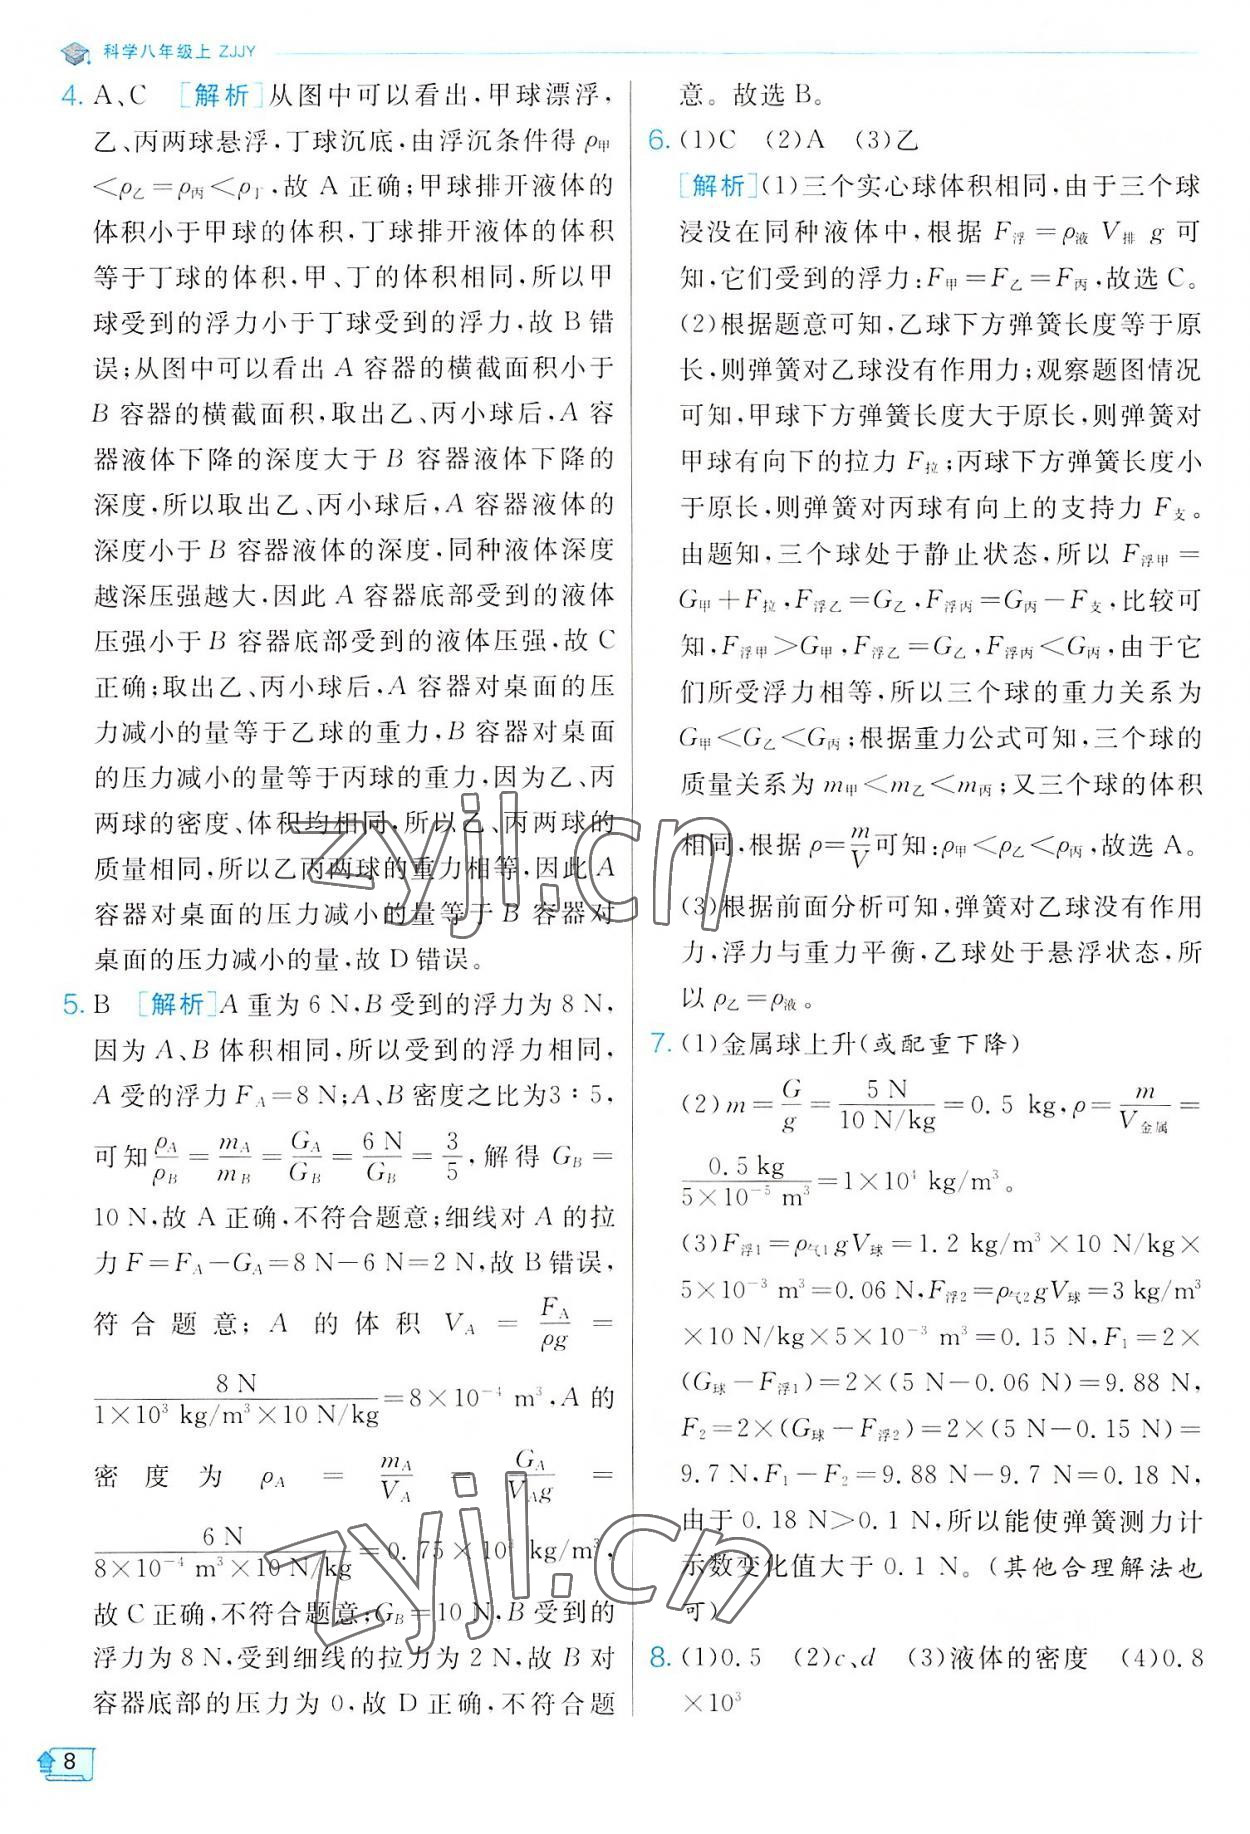 科学八年级上 ZJJY
4. A、C [解析]从图中可以看出,甲球漂浮,
乙、丙两球悬浮,丁球沉底,由浮沉条件得 ρ甲
<ρ乙=ρ丙<ρ丁,故 A 正确;甲球排开液体的
体积小于甲球的体积,丁球排开液体的体积
等于丁球的体积,甲、丁的体积相同,所以甲
球受到的浮力小于丁球受到的浮力,故 B 错
误;从图中可以看出 A 容器的横截面积小于
B 容器的横截面积,取出乙、丙小球后,A 容
器液体下降的深度大于 B 容器液体下降的
深度,所以取出乙、丙小球后,A 容器液体的
深度小于 B 容器液体的深度,同种液体深度
越深压强越大,因此 A 容器底部受到的液体
压强小于 B 容器底部受到的液体压强,故 C
正确;取出乙、丙小球后,A 容器对桌面的压
力减小的量等于乙球的重力,B 容器对桌面
的压力减小的量等于丙球的重力,因为乙、丙
两球的密度、体积均相同,所以乙、丙两球的
质量相同,所以乙丙两球的重力相等,因此 A
容器对桌面的压力减小的量等于 B 容器对
桌面的压力减小的量,故 D 错误。
5. B [解析]A 重为 6 N,B 受到的浮力为 8 N,
因为 A、B 体积相同,所以受到的浮力相同,
A 受的浮力 F_A=8 N;A、B 密度之比为3∶5,
可知ρ_A/ρ_B=m_A/m_B=G_A/G_B=6 N/G_B=3/5,解得 G_B=
10 N,故 A 正确,不符合题意;细线对 A 的拉
力 F=F_A-G_A=8 N-6 N=2 N,故 B 错误,
符合题意;A 的体积 V_A=F_A/ρg=
8 N/(1×10³ kg/m³×10 N/kg)=8×10⁻⁴ m³,A 的
密度为 ρ_A=m_A/V_A=G_A/(V_A g)=
6 N/(8×10⁻⁴ m³×10 N/kg)=0.75×10³ kg/m³,
故 C 正确,不符合题意;G_B=10 N,B 受到的
浮力为 8 N,受到细线的拉力为 2 N,故 B 对
容器底部的压力为 0,故 D 正确,不符合题
意。故选 B。
6. (1)C (2)A (3)乙
[解析](1)三个实心球体积相同,由于三个球
浸没在同种液体中,根据 F浮=ρ液 V排 g 可
知,它们受到的浮力:F甲=F乙=F丙,故选 C。
(2)根据题意可知,乙球下方弹簧长度等于原
长,则弹簧对乙球没有作用力;观察题图情况
可知,甲球下方弹簧长度大于原长,则弹簧对
甲球有向下的拉力 F拉;丙球下方弹簧长度小
于原长,则弹簧对丙球有向上的支持力 F支。
由题知,三个球处于静止状态,所以 F浮甲=
G甲+F拉,F浮乙=G乙,F浮丙=G丙-F支,比较可
知,F浮甲>G甲,F浮乙=G乙,F浮丙<G丙,由于它
们所受浮力相等,所以三个球的重力关系为
G甲<G乙<G丙;根据重力公式可知,三个球的
质量关系为 m甲<m乙<m丙;又三个球的体积
相同,根据 ρ=m/V可知:ρ甲<ρ乙<ρ丙,故选 A。
(3)根据前面分析可知,弹簧对乙球没有作用
力,浮力与重力平衡,乙球处于悬浮状态,所
以 ρ乙=ρ液。
7. (1)金属球上升(或配重下降)
(2)m=G/g=5 N/(10 N/kg)=0.5 kg,ρ=m/V金属=
0.5 kg/(5×10⁻⁵ m³)=1×10⁴ kg/m³。
(3)F浮1=ρ气1gV球=1.2 kg/m³×10 N/kg×
5×10⁻³ m³=0.06 N,F浮2=ρ气2gV球=3 kg/m³
×10 N/kg×5×10⁻³ m³=0.15 N,F₁=2×
(G球-F浮1)=2×(5 N-0.06 N)=9.88 N,
F₂=2×(G球-F浮2)=2×(5 N-0.15 N)=
9.7 N,F₁-F₂=9.88 N-9.7 N=0.18 N,
由于 0.18 N>0.1 N,所以能使弹簧测力计
示数变化值大于 0.1 N。(其他合理解法也
可)
8. (1)0.5 (2)c、d (3)液体的密度 (4)0.8
×10³
8
zyjl.cn
zyjl.cn